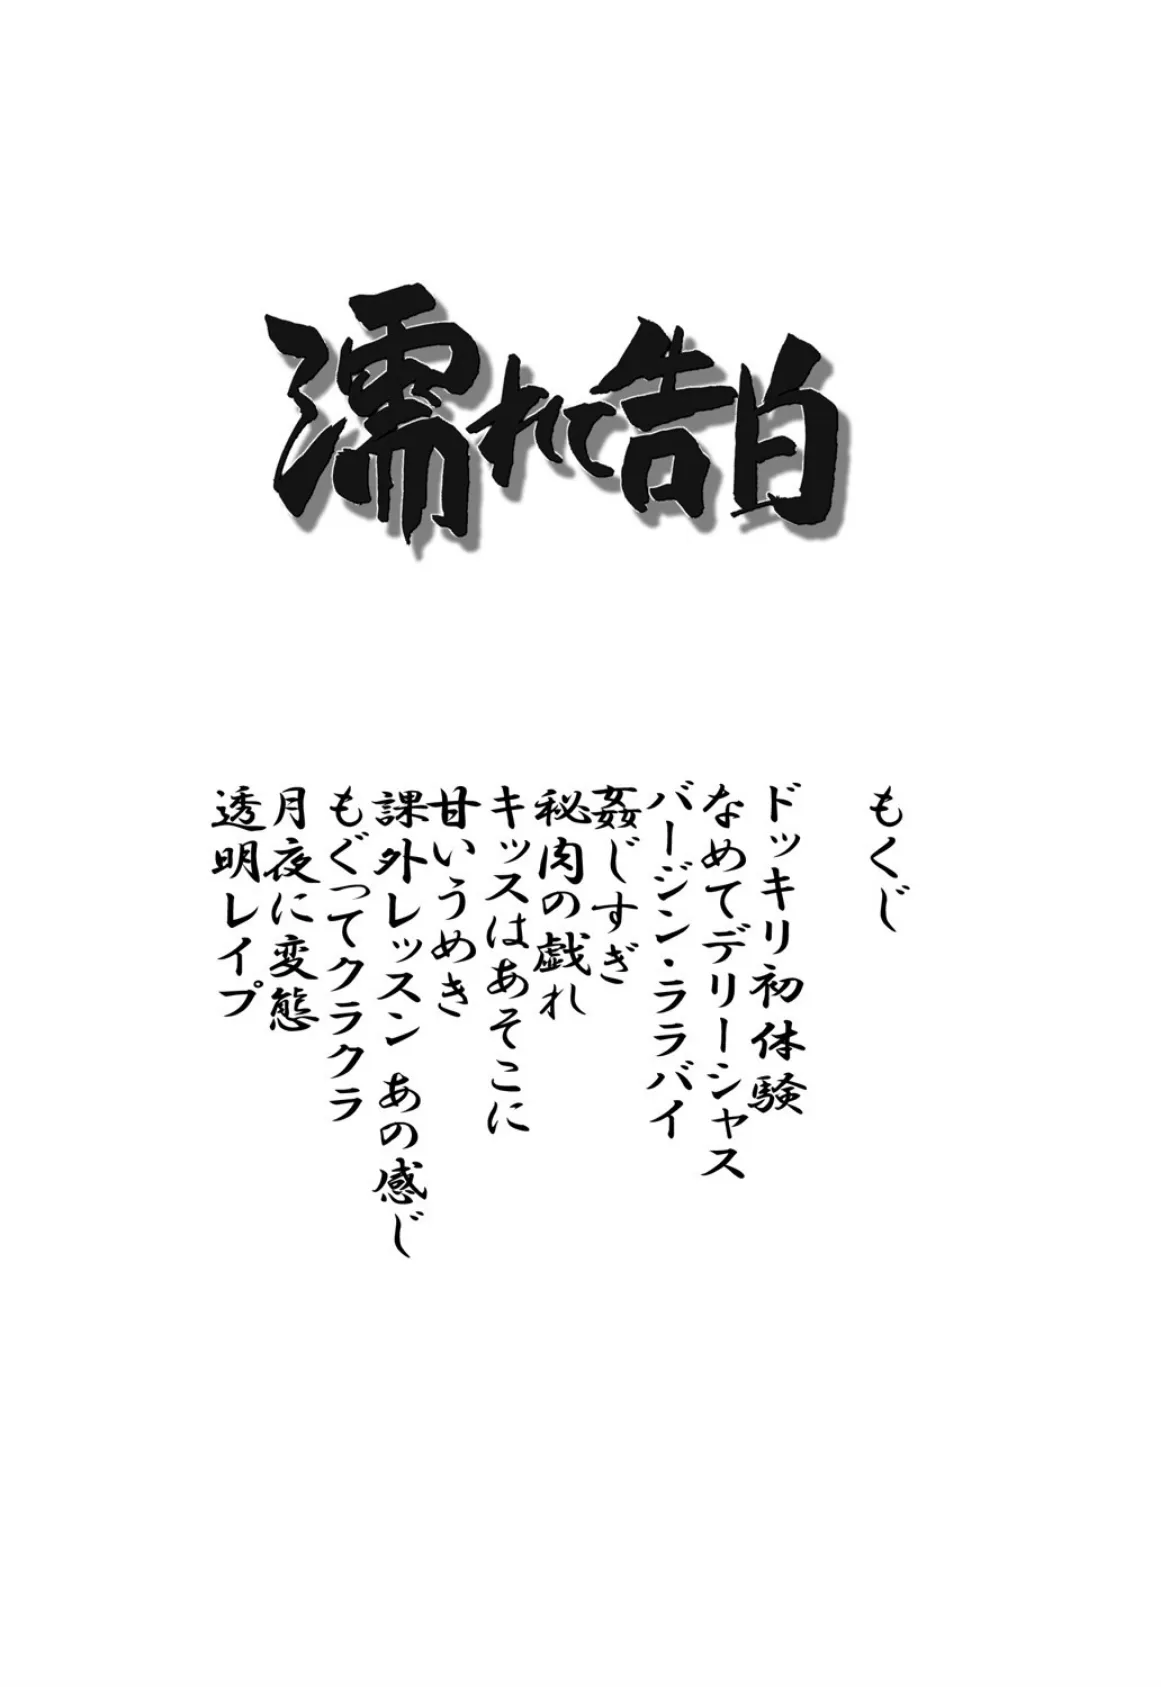 濡れて告白
もくじ
ドッキリ初体験
なめてデリーシャス
バージン・ララバイ
姦じすぎ
秘肉の戯れ
キッスはあそこに
甘いうめき
課外レッスン あの感じ
もぐってクラクラ
月夜に変態
透明レイプ